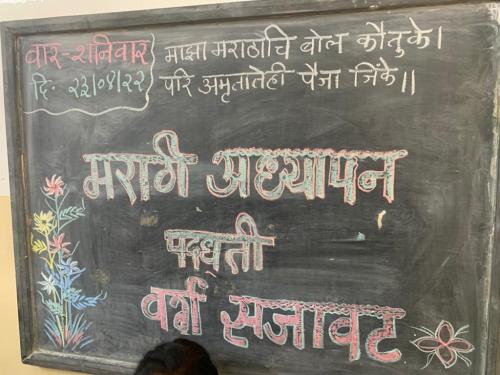 वार-शनिवार
दि. २३।०४।२२
माझा मराठाचि बोल कौतुके।
परि अमृतातेही पैजा जिंके॥
मराठी अध्यापन
पद्धती
वर्ग सजावट